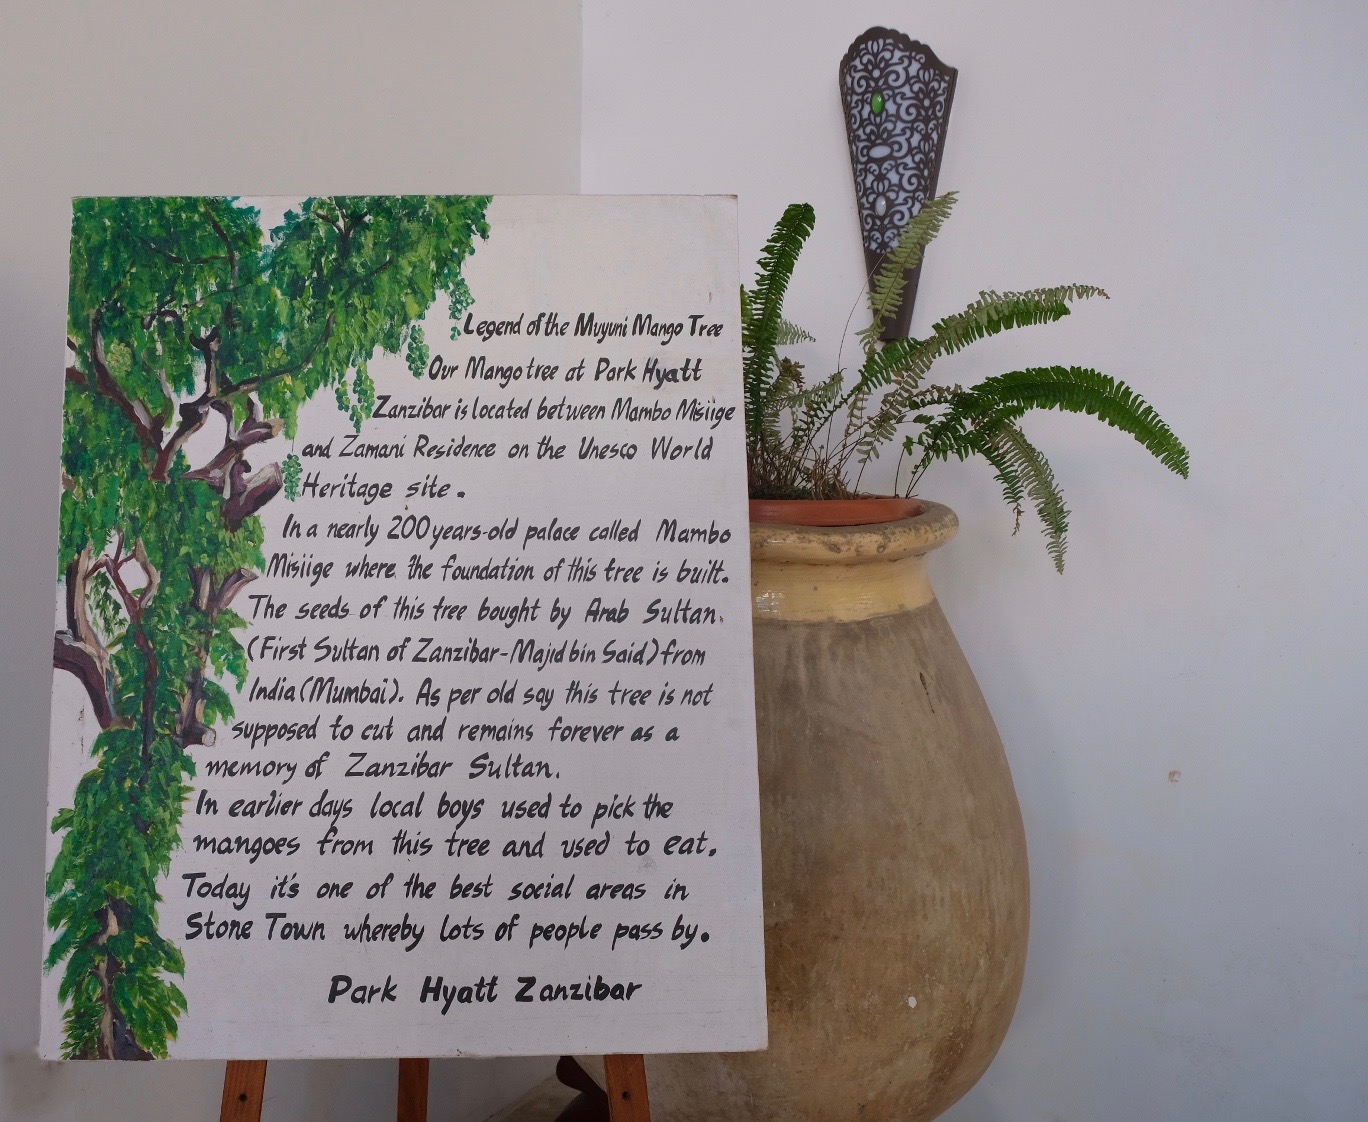 Legend of the Muyuni Mango Tree
Our Mango tree at Park Hyatt
Zanzibar is located between Mambo Misiige
and Zamani Residence on the Unesco World
Heritage site.
In a nearly 200 years-old palace called Mambo
Misiige where the foundation of this tree is built.
The seeds of this tree bought by Arab Sultan.
(First Sultan of Zanzibar-Majid bin Said) from
India (Mumbai). As per old say this tree is not
supposed to cut and remains forever as a
memory of Zanzibar Sultan.
In earlier days local boys used to pick the
mangoes from this tree and used to eat.
Today it's one of the best social areas in
Stone Town whereby lots of people pass by.
Park Hyatt Zanzibar